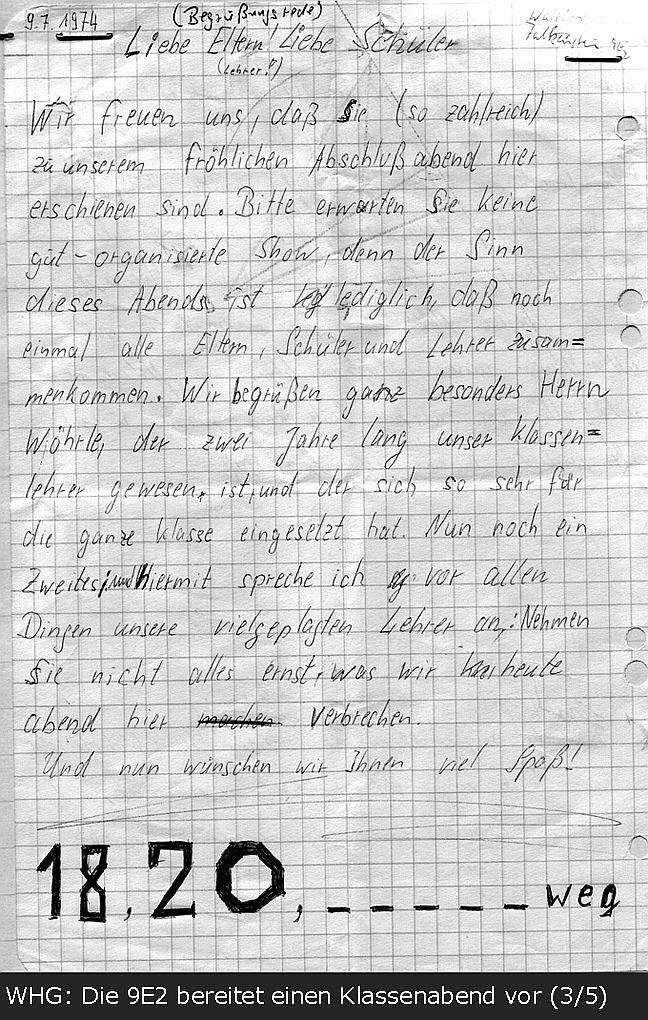 9.7.1974 (Begrüßungsrede)
Liebe Eltern! Liebe Schüler
(Lehrer!)
Wir freuen uns, daß Sie (so zahlreich)
zu unserem fröhlichen Abschlußabend hier
erschienen sind. Bitte erwarten Sie keine
gut-organisierte Show, denn der Sinn
dieses Abends ist lediglich, daß noch
einmal alle Eltern, Schüler und Lehrer zusam=
menkommen. Wir begrüßen ganz besonders Herrn
Wöhrle, der zwei Jahre lang unser Klassen=
lehrer gewesen ist, und der sich so sehr für
die ganze Klasse eingesetzt hat. Nun noch ein
Zweites; und hiermit spreche ich vor allen
Dingen unsere vielgeplagten Lehrer an,: Nehmen
Sie nicht alles ernst, was wir heute
abend hier machen verbrechen.
Und nun wünschen wir Ihnen viel Spaß!
18.20, _ _ _ _ _ weg
WHG: Die 9E2 bereitet einen Klassenabend vor (3/5)